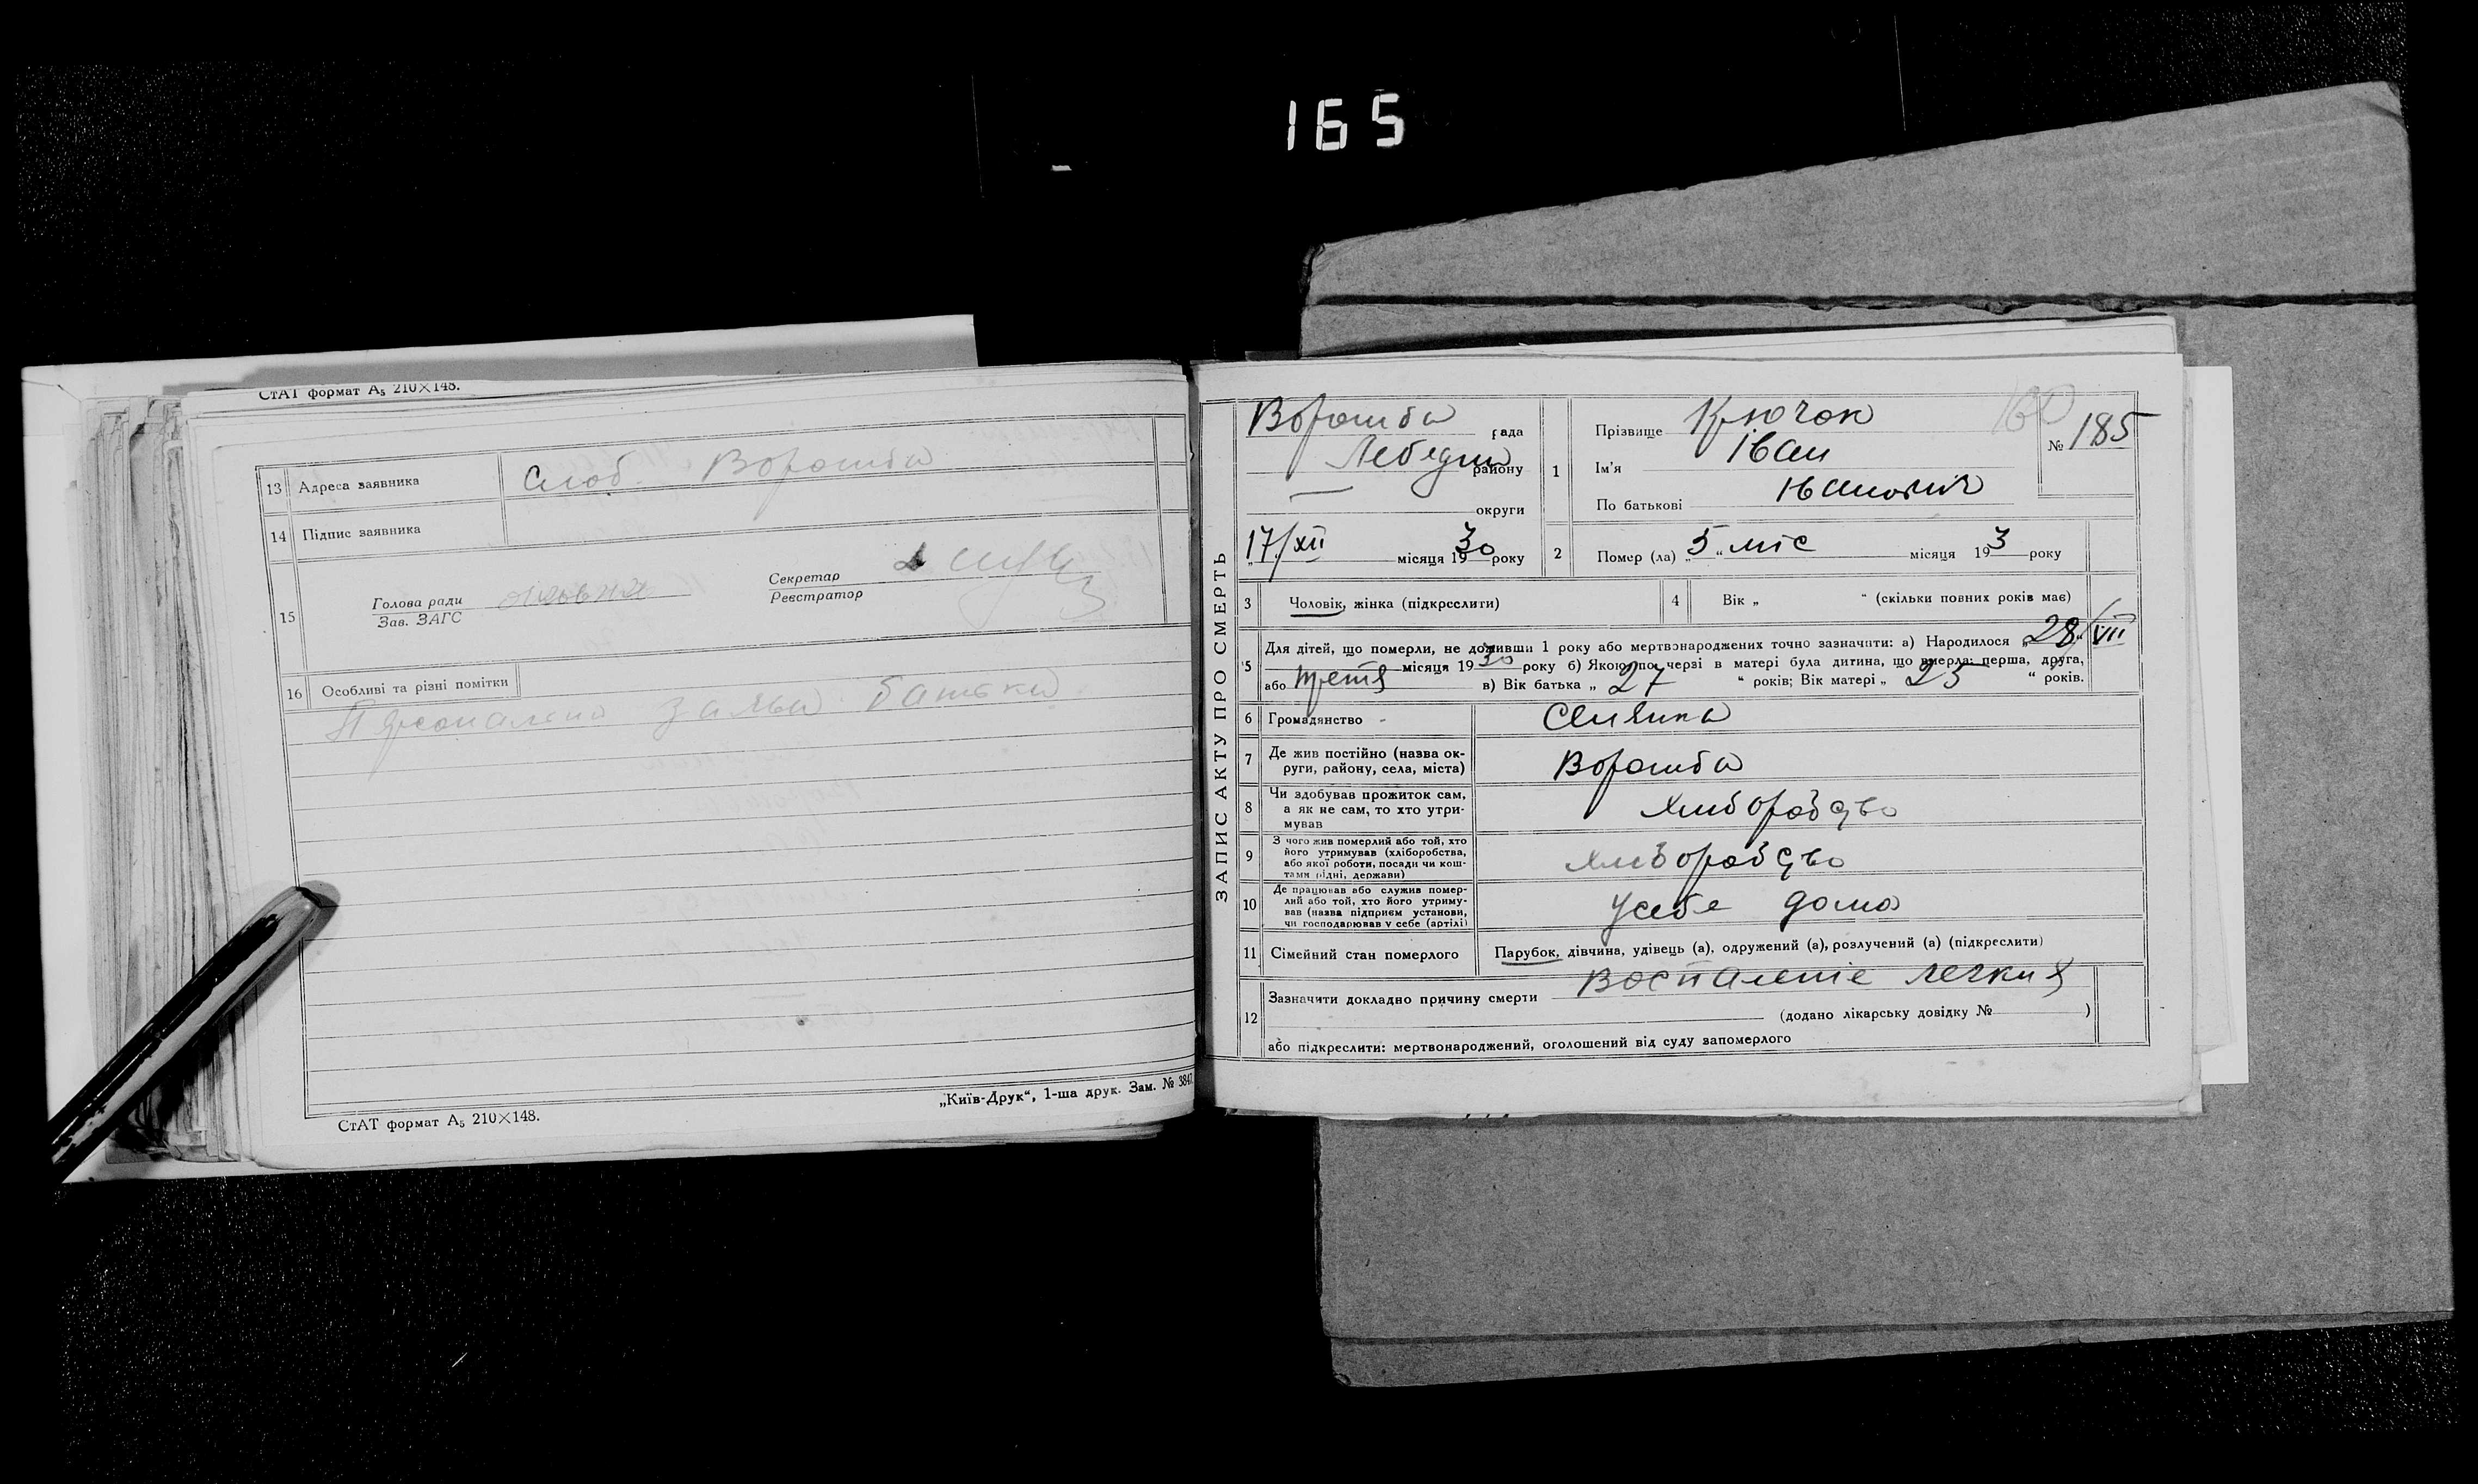 165
СтАТ формат А₅ 210×148.
13 Адреса заявника Слоб. Ворожба
14 Підпис заявника
15 Голова ради
Зав. ЗАГС
Секретар
Реєстратор
16 Особливі та різні помітки
заява батька
„Київ-Друк“, 1-ша друк. Зам. № 3847
СтАТ формат А₅ 210×148.
ЗАПИС АКТУ ПРО СМЕРТЬ
Ворожба рада
Лебедин району
— округи
17/XII місяця 1930 року
160
№ 185
1 Прізвище Крючок
Ім'я Іван
По батькові Іванович
2 Помер (ла) „5“ міс місяця 193 року
3 Чоловік, жінка (підкреслити)
4 Вік „ “ (скільки повних років має)
5 Для дітей, що померли, не доживши 1 року або мертвонароджених точно зазначити: а) Народилося „28“/VII
місяця 1930 року б) Якою по черзі в матері була дитина, що вмерла: перша, друга,
або третя в) Вік батька „ 27 “ років; Вік матері „ 25 “ років.
6 Громадянство
7 Де жив постійно (назва ок-
руги, району, села, міста) Ворожба
8 Чи здобував прожиток сам,
а як не сам, то хто утри-
мував Хліборобство
9 З чого жив померлий або той, хто
його утримував (хліборобства,
або якої роботи, посади чи кош-
тами рідні, держави) хліборобство
10 Де працював або служив помер-
лий або той, хто його утриму-
вав (назва підприєм установи,
чи господарював у себе (артілі) Усебе дома
11 Сімейний стан померлого Парубок, дівчина, удівець (а), одружений (а), розлучений (а) (підкреслити)
12 Зазначити докладно причину смерти Воспаленіе легких
(додано лікарську довідку № )
або підкреслити: мертвонароджений, оголошений від суду запомерлого